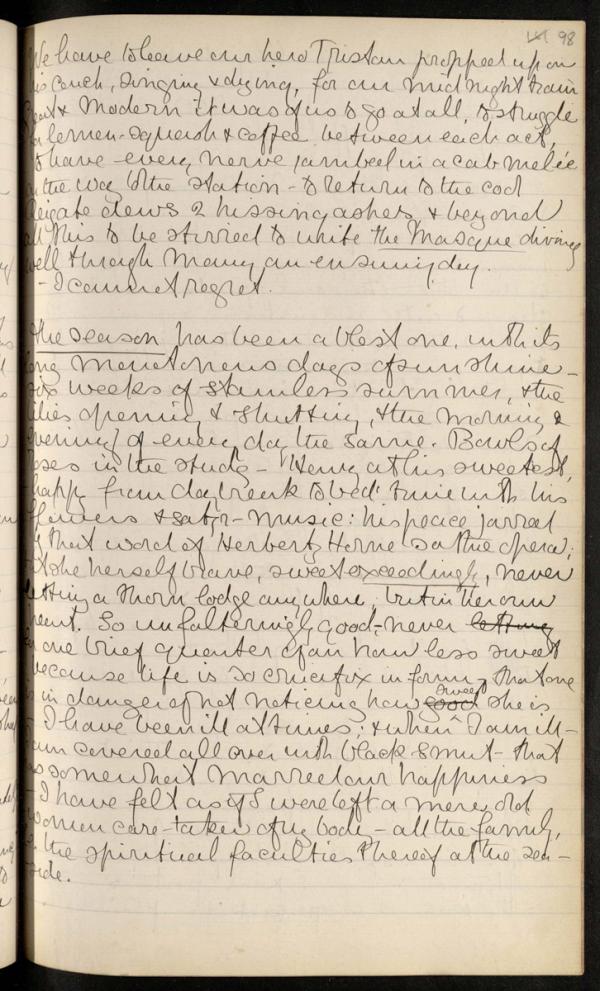 98
We have to leave our hero Tristan propped up on
his couch, singing & dying, for our midnight train
& Modern it was of us to go at all, to struggle
for lemon-squash & coffee between each act,
to have every nerve jambed in a cab melée
on the way to the station - to return to the cool
Reigate dews & hissing ashes, & beyond
all this to be stirred to write the Masque diving
well through many an ensuing day.
- I cannot regret.
The season has been a blest one, with its
long monotonous days of sunshine -
six weeks of stainless summer, & the
lilies opening & shutting, & the morning &
evening of every day the same. Bowls of
roses in the study - Henry at his sweetest,
happy from daybreak to bed time with his
flowers & satyr-music: his peace jarred
by that word of Herbert Horne's at the opera;
yet she herself brave, sweet exceedingly, never
letting a thorn lodge anywhere, but in her own
heart. So unfalteringly good - never letting
for one brief quarter of an hour less sweet
because life is so crucifix in form, that one
is in danger of not noticing how good sweet she is
- I have been ill at times; & when I am ill -
am covered all over with black smut - that
has somewhat marred our happiness
- I have felt as if I were left a mere old
women care-taker of my body - all the family,
the spiritual faculties thereof at the sea-
side.